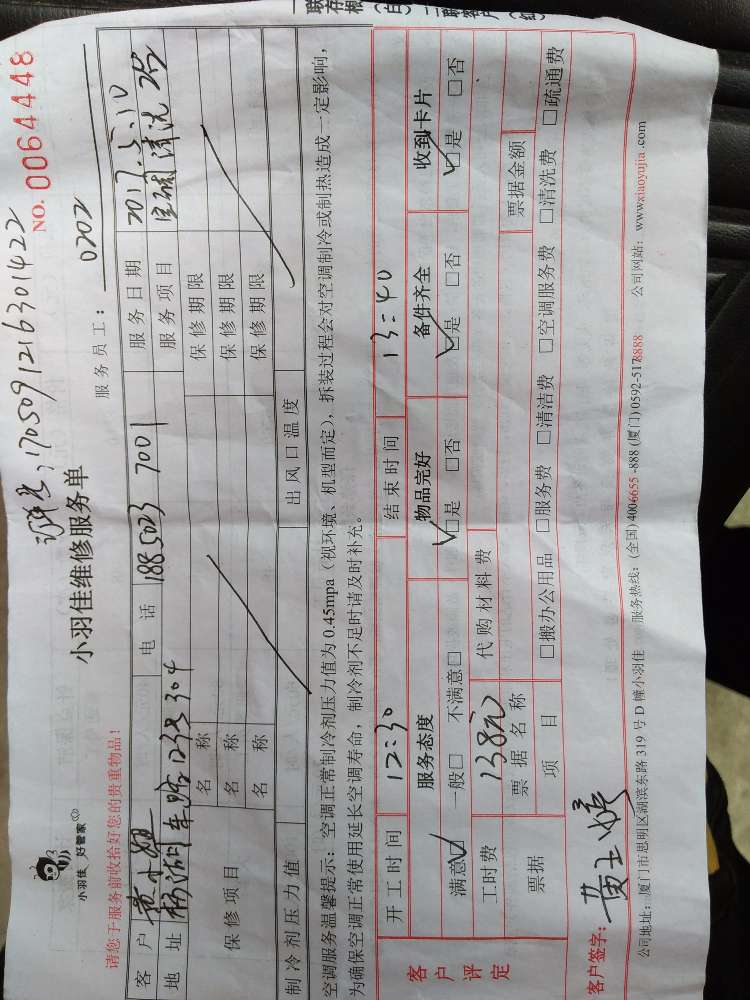 小羽佳 好管家
170509121630​1422
小羽佳维修服务单
NO. 0064448
请您于服务前收拾好您的贵重物品!
服务员工: 0202
客户 黄小姐 电话 188 5023 7001 服务日期 2017.5.10
地址 304 服务项目 空调清洗2台
保修项目 名称 保修期限
名称 保修期限
名称 保修期限
制冷剂压力值 出风口温度
空调服务温馨提示:空调正常制冷剂压力值为0.45mpa(视环境、机型而定),拆装过程会对空调制冷或制热造成一定影响,
为确保空调正常使用延长空调寿命,制冷剂不足时请及时补充。
客户评定
开工时间 12:30 结束时间 13:40
服务态度 物品完好 备件齐全 收到卡片
满意☑ 一般□ 不满意□ ☑是 □否 ☑是 □否 ☑是 □否
工时费 138元 代购材料费
票据 票据名称 票据金额
项目 □搬办公用品 □服务费 □清洁费 □空调服务费 □清洗费 □疏通费
客户签字:
公司地址:厦门市思明区湖滨东路319号D幢小羽佳 服务热线:(全国)4006655-888 (厦门)0592-5178888 公司网站:www.xiaoyujia.com